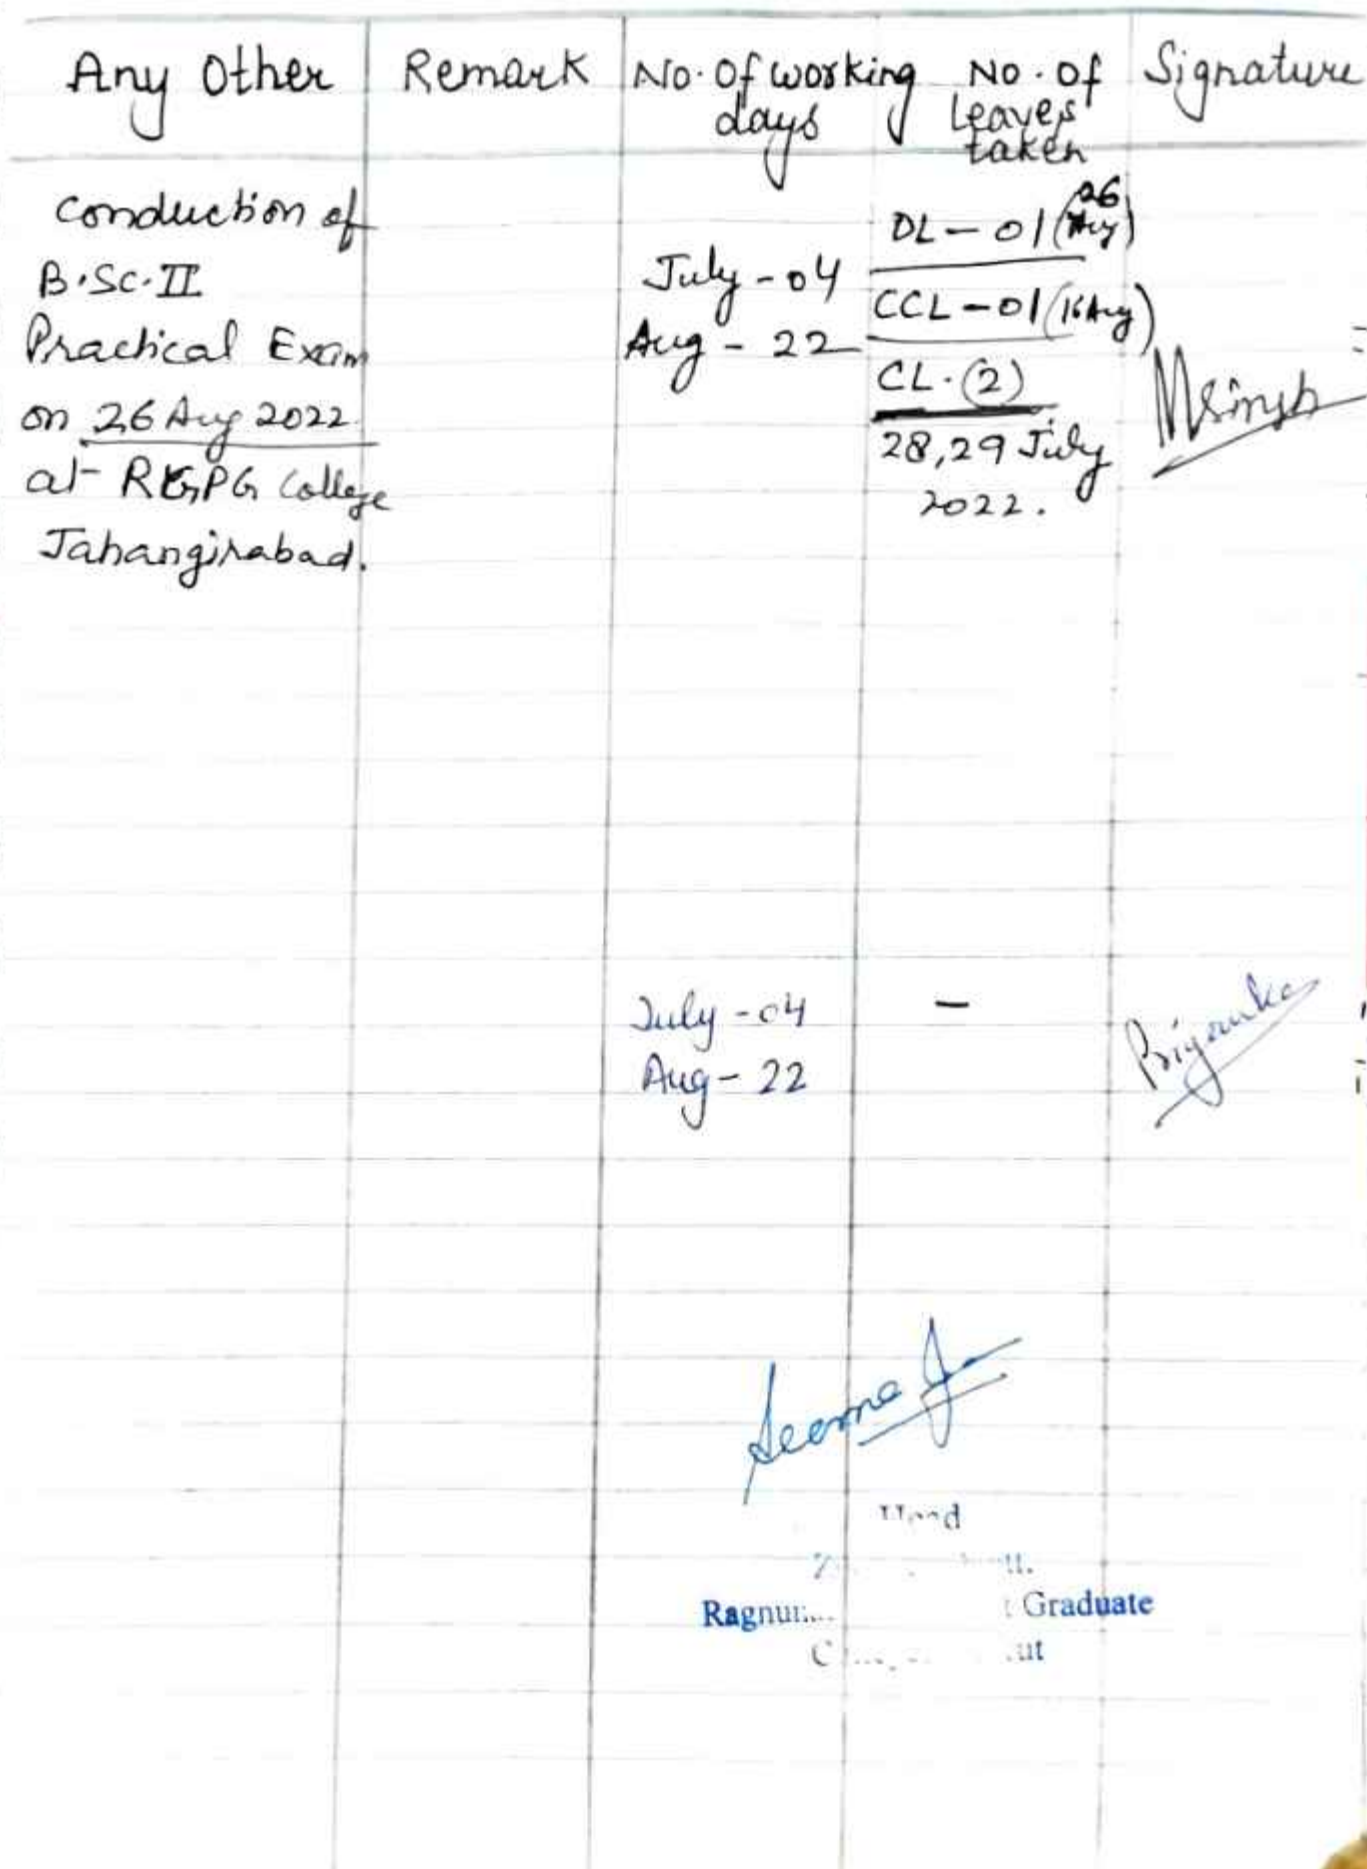 Any Other
Remark
No. Of working
days
No. of
leaves
taken
Signature
Conduction of
B.Sc. II
Practical Exam
on 26 Aug 2022
at College
Jahangirabad.
July - 04
Aug - 22
DL - 01 (26
Aug)
CCL - 01 (16 Aug)
CL. (2)
28, 29 July
2022.
MSingh
July - 04
Aug - 22
-
Priyanka
Seema
Head
Graduate